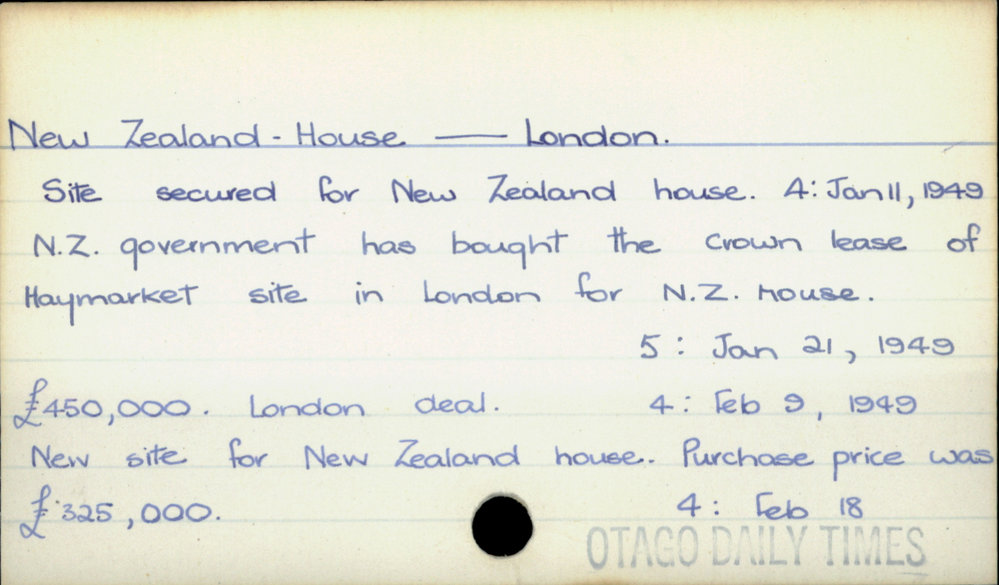 New Zealand - House — London.
Site secured for New Zealand house. 4: Jan 11, 1949
N.Z. government has bought the crown lease of
Haymarket site in London for N.Z. House.
5: Jan 21, 1949
£450,000. London deal. 4: Feb 9, 1949
New site for New Zealand house. Purchase price was
£325,000. 4: Feb 18
OTAGO DAILY TIMES